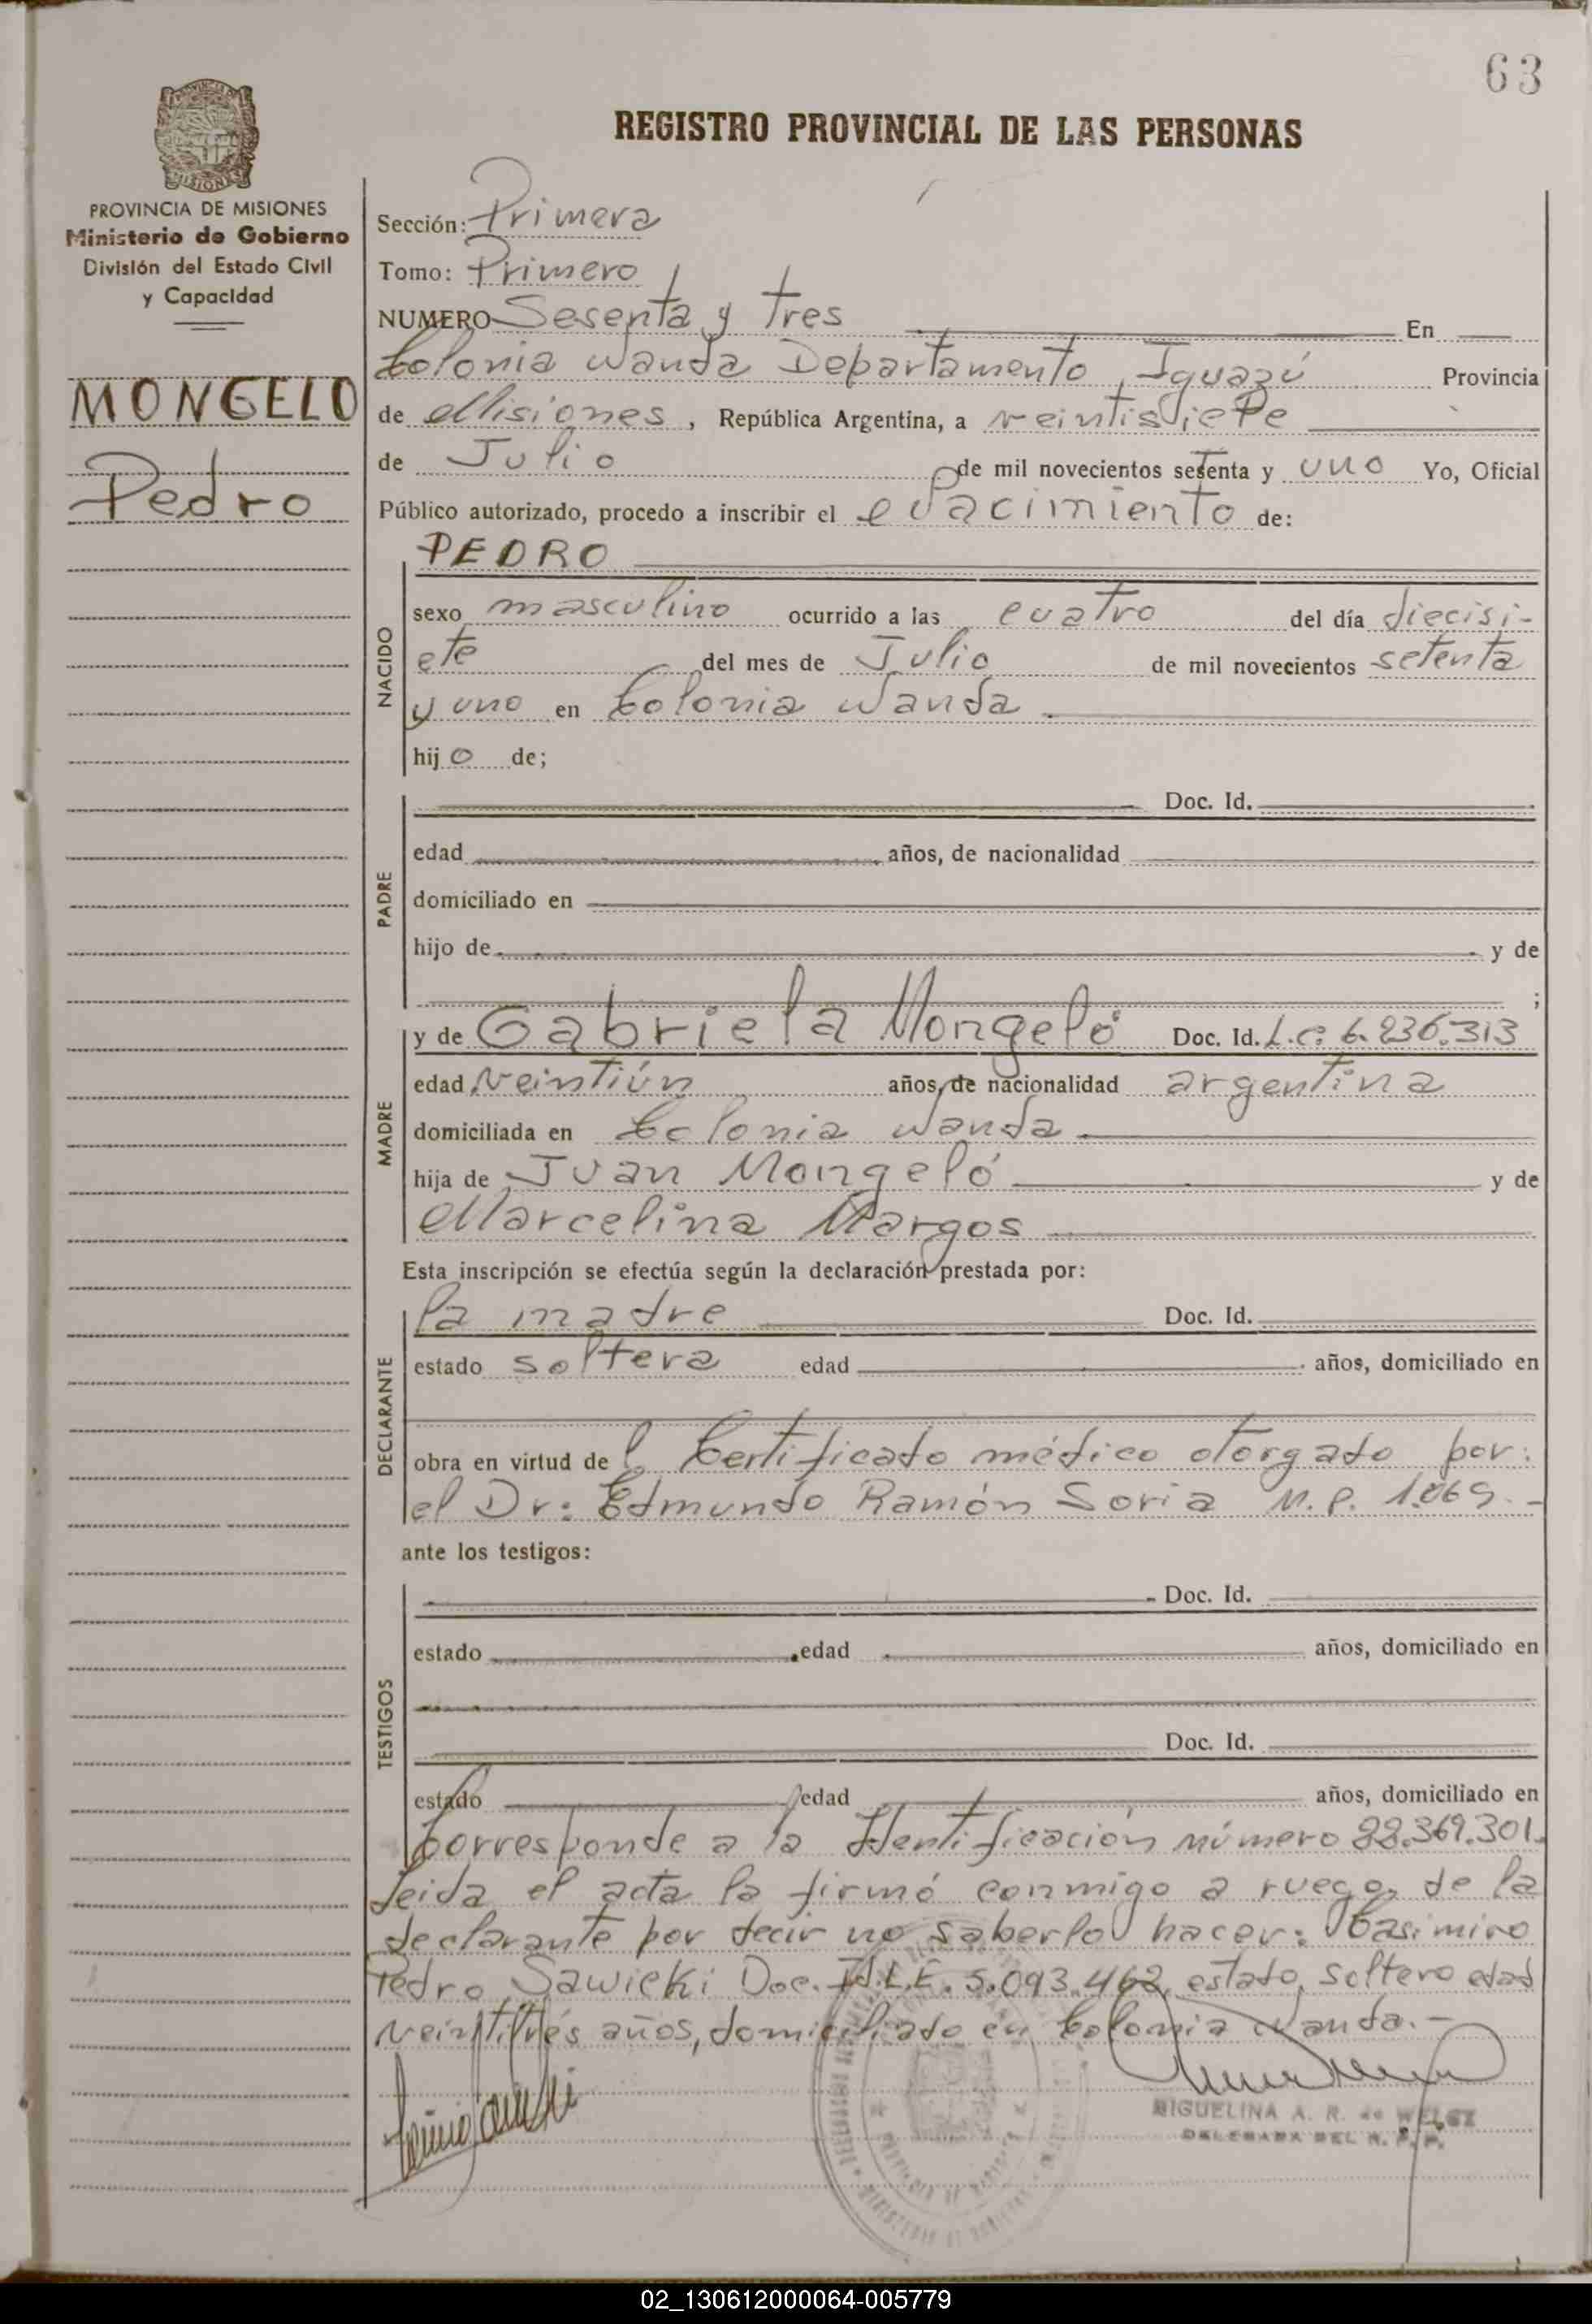 63
REGISTRO PROVINCIAL DE LAS PERSONAS
PROVINCIA DE MISIONES
Ministerio de Gobierno
División del Estado Civil
y Capacidad
MONGELO
Pedro
Sección: Primera
Tomo: Primero
NUMERO Sesenta y tres En
Colonia Wanda Departamento Iguazú Provincia
de Misiones, República Argentina, a veintisiete
de Julio de mil novecientos setenta y uno Yo, Oficial
Público autorizado, procedo a inscribir el Nacimiento de:
NACIDO
PEDRO
sexo masculino ocurrido a las cuatro del día diecisi-
ete del mes de Julio de mil novecientos setenta
y uno en Colonia Wanda
hijo de;
PADRE
Doc. Id.
edad años, de nacionalidad
domiciliado en
hijo de y de
;
MADRE
y de Gabriela Mongeló Doc. Id. L.C. 6.236.313
edad veintiún años, de nacionalidad argentina
domiciliada en Colonia Wanda
hija de Juan Mongeló y de
Marcelina Margos
Esta inscripción se efectúa según la declaración prestada por:
DECLARANTE
la madre Doc. Id.
estado soltera edad años, domiciliado en
obra en virtud del Certificado médico otorgado por:
el Dr: Edmundo Ramón Soria M.P. 1.069.-
ante los testigos:
TESTIGOS
Doc. Id.
estado edad años, domiciliado en
Doc. Id.
estado edad años, domiciliado en
Corresponde a la Identificación número 22.369.301.
Leida el acta la firmó conmigo a ruego de la
declarante por decir no saberlo hacer: Casimiro
Pedro Sawicki Doc. Id. L.E. 5.093.462, estado soltero edad
veintitrés años, domiciliado en Colonia Wanda.-
MIGUELINA A. R. de WELGZ
DELEGADA DEL R. P. P.
02_130612000064-005779